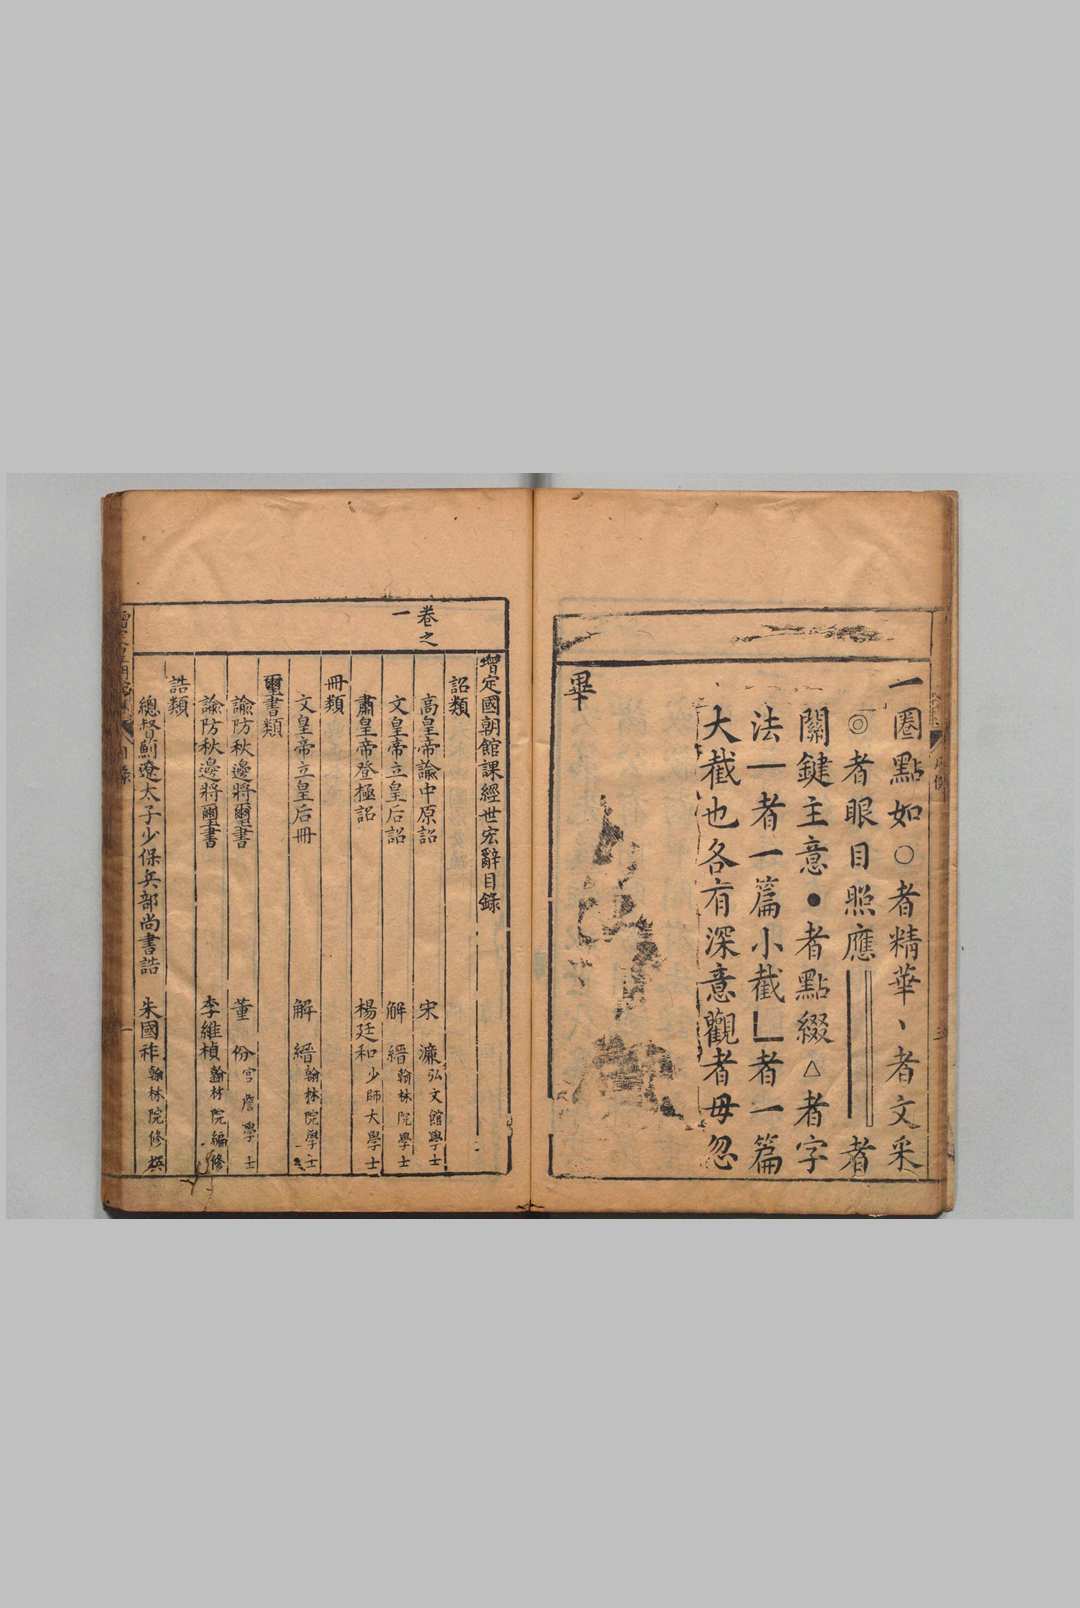 一圈點如○者精華、者文采
◎者眼目照應‖者
關鍵主意●者點綴△者字
法一者一篇小截乚者一篇
大截也各有深意觀者毋忽
畢
卷之
一
增定國朝館課經世宏辭目錄
詔類
高皇帝諭中原詔 宋濂弘文館學士
文皇帝立皇后詔 解縉翰林院學士
肅皇帝登極詔 楊廷和少師大學士
冊類
文皇帝立皇后冊 解縉翰林院學士
璽書類
諭防秋邊將璽書 董份宮詹學士
諭防秋邊將璽書 李維楨翰林院編修
誥類
總督薊遼太子少保兵部尚書誥 朱國祚翰林院修撰